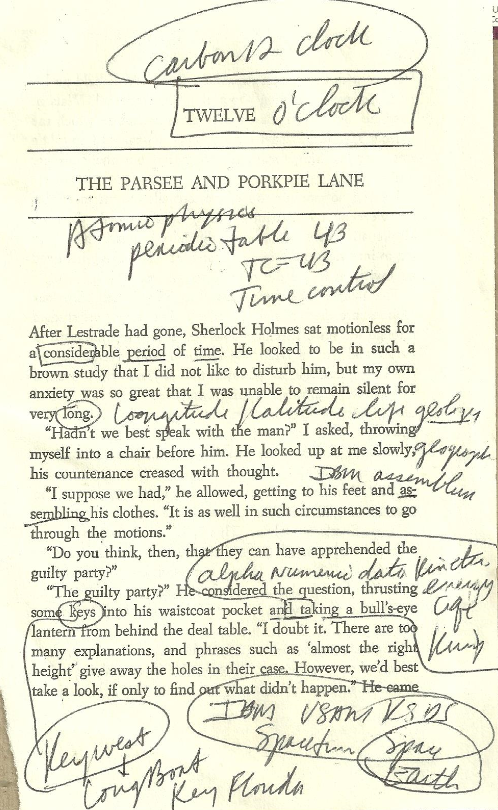 carbon 12 clock
TWELVE O'clock
THE PARSEE AND PORKPIE LANE
Atomic physics
periodic table 43
TC=43
Time control
After Lestrade had gone, Sherlock Holmes sat motionless for
a considerable period of time. He looked to be in such a
brown study that I did not like to disturb him, but my own
anxiety was so great that I was unable to remain silent for
very long. Longitude / Latitude life geology
"Hadn't we best speak with the man?" I asked, throwing
myself into a chair before him. He looked up at me slowly,
his countenance creased with thought. IBM assembler
"I suppose we had," he allowed, getting to his feet and as-
sembling his clothes. "It is as well in such circumstances to go
through the motions."
"Do you think, then, that they can have apprehended the
guilty party?" alpha numeric data
"The guilty party?" He considered the question, thrusting energy
some keys into his waistcoat pocket and taking a bull's-eye
lantern from behind the deal table. "I doubt it. There are too
many explanations, and phrases such as 'almost the right
height' give away the holes in their case. However, we'd best
take a look, if only to find out what didn't happen." He came
IBM VSAM KSDS
Space
Earth
Key West
Long Boat
Key Florida